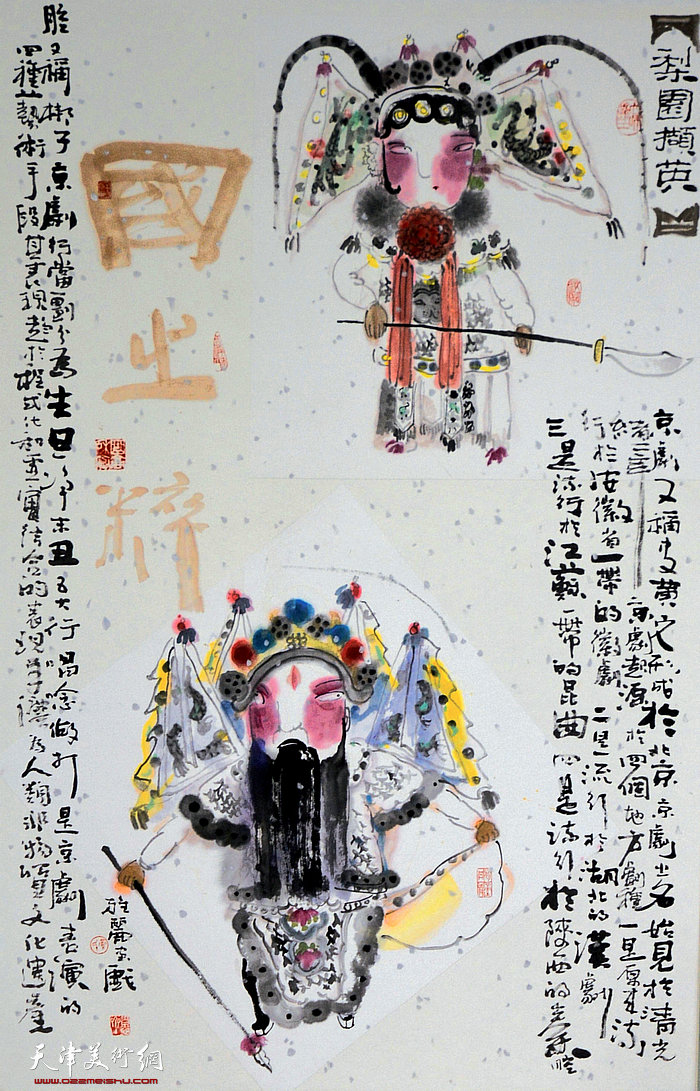 梨園擷英
京劇又稱皮黄它形成於北京京劇之名始見於清光
緒二年
京劇起源於四個地方劇種一是原來流
行於安徽省一帶的徽劇二是流行於湖北的漢劇
三是流行於江蘇一帶的昆曲四是流行於陝西的秦
腔又稱梆子京劇行當劃分為生旦淨末丑五大行唱念做打是京劇表演的
四種藝術手段其表現趨於程式化和虛實結合的表現手法為人類非物質文化遺產
國之粹
天津美術網
www.022meishu.com